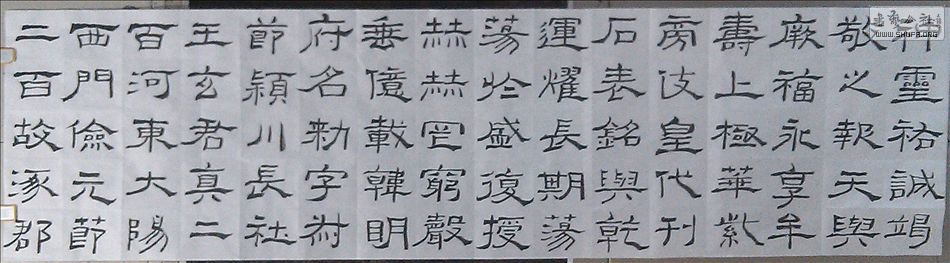 神靈祐誠竭
敬之報天與
厥福永享牟
壽上極華紫
旁伎皇代刊
石表銘與乾
運燿長期蕩
蕩於盛復授
赫赫罔窮聲
垂億載韓明
府名勑字叔
節潁川長社
王玄君真二
百河東大陽
西門儉元節
二百故涿郡
書藝公社
WWW.SHUFA.ORG